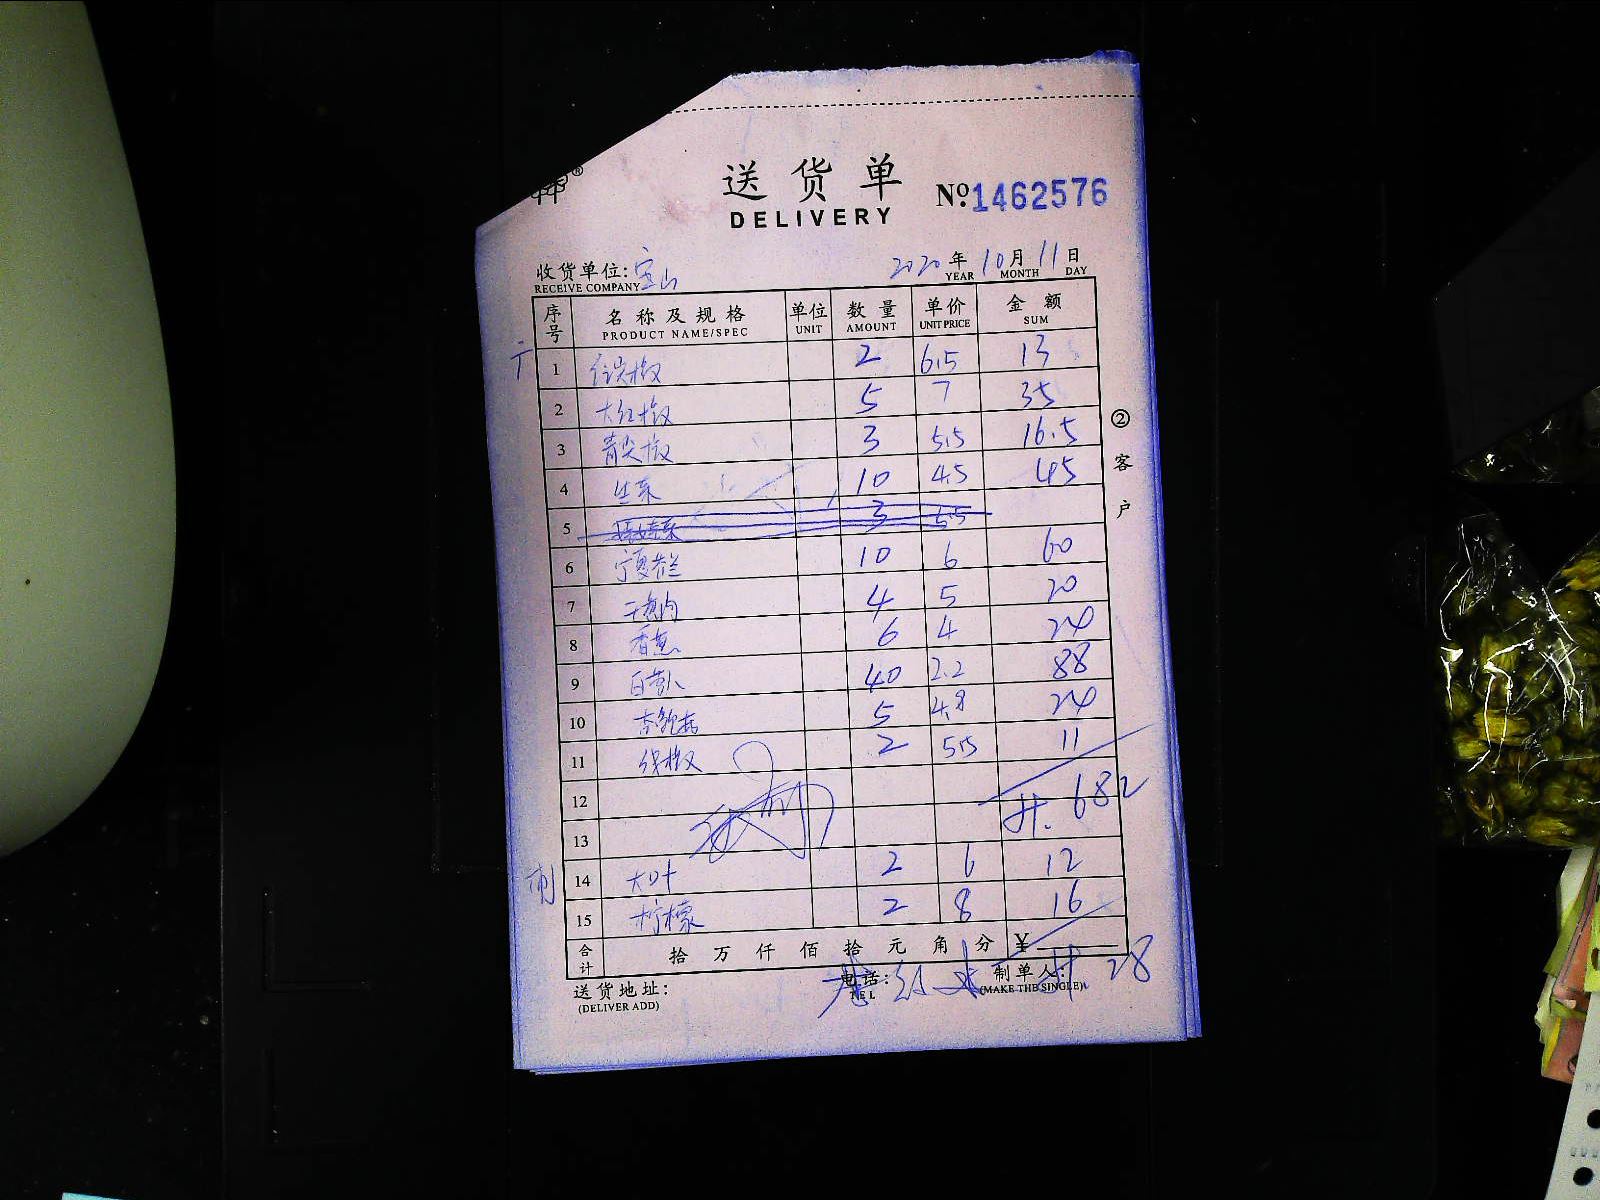 送货单
DELIVERY
№1462576
收货单位: 宝山 2020年10月11日
RECEIVE COMPANY YEAR MONTH DAY
序号 名称及规格 单位 数量 单价 金额
PRODUCT NAME/SPEC UNIT AMOUNT UNIT PRICE SUM
1 2 6.5 13
2 大红椒 5 7 35
3 青尖椒 3 5.5 16.5
4 生菜 10 4.5 45
5 3 5.5
6 10 6 60
7 4 5 20
8 香葱 6 4 24
9 白萝卜 40 2.2 88
10 杏鲍菇 5 4.8 24
11 线椒 2 5.5 11
12 共. 682
13
14 大叶 2 6 12
15 柠檬 2 8 16
合计 拾万仟佰拾元角分 ¥
28
送货地址: 电话: 制单人:
(DELIVER ADD) TEL (MAKE THE SINGLE)
②客户